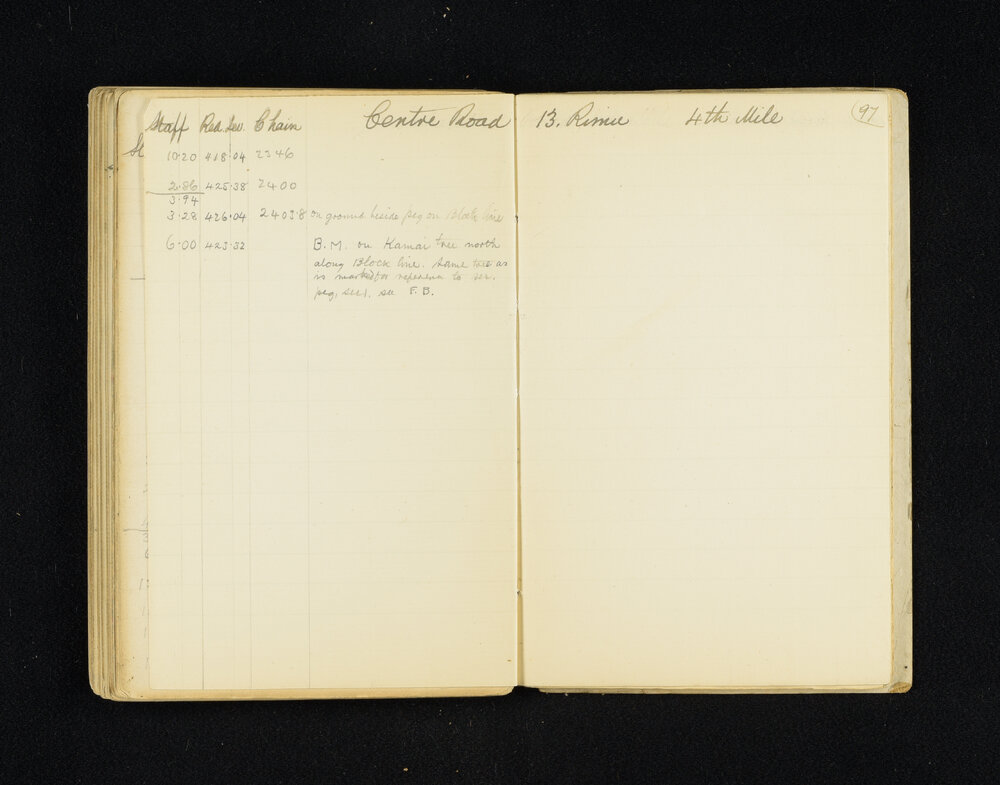 Staff Red. Lev. Chain Centre Road 13. Rimu 4th Mile 97
10.20 418.04 2346
2.86 425.38 2400
3.94
3.28 426.04 2403.8 on ground beside peg on Block line
6.00 423.32 B.M. on Kamai tree north
along Block line. Same tree as
is marked for reference to
peg, see F.B.